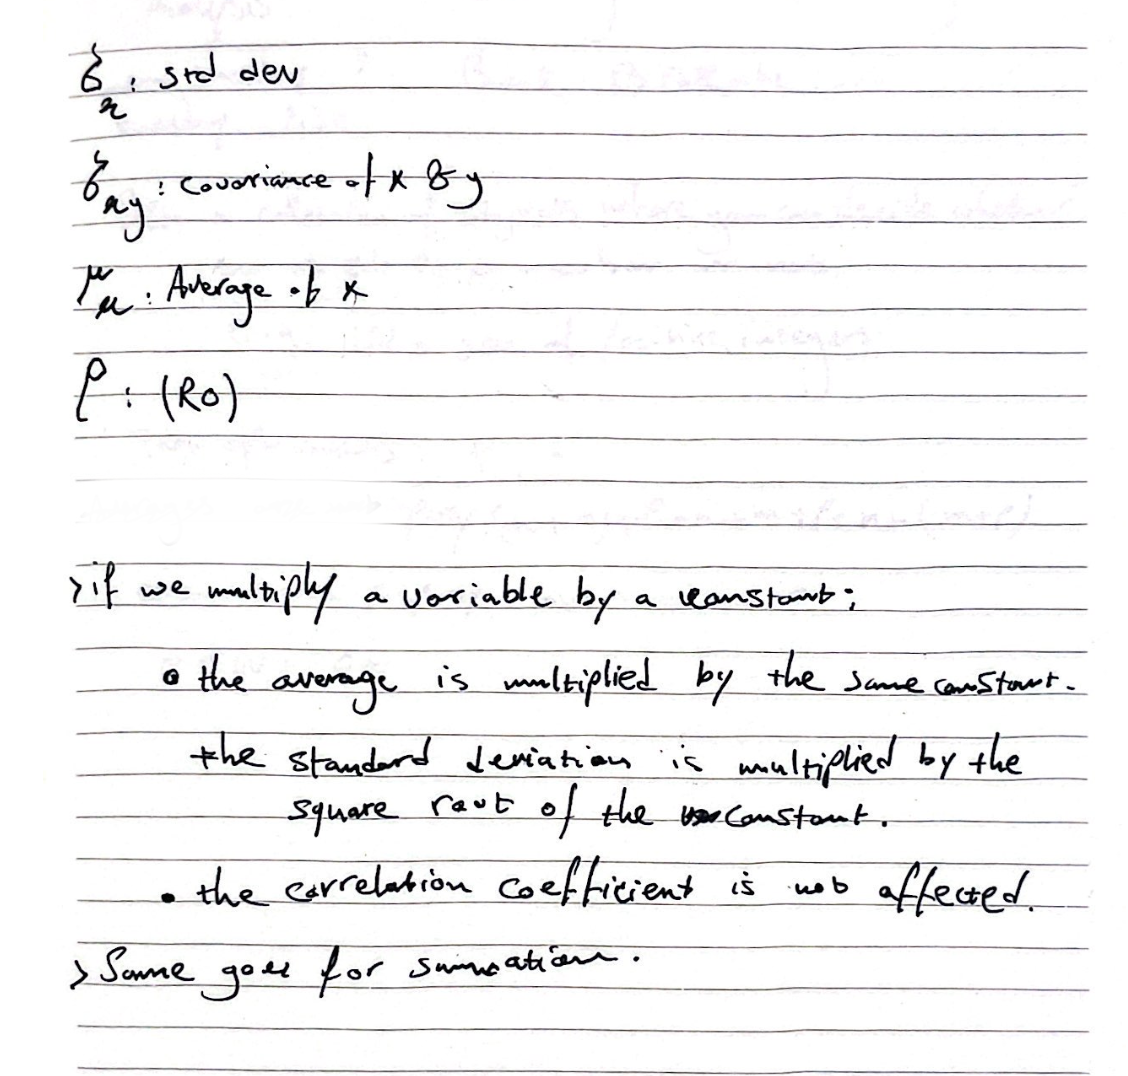 σ_x : std dev
σ_xy : covariance of x & y
μ_x : Average of x
ρ : (Ro)
> if we multiply a variable by a constant:
• the average is multiplied by the same constant.
the standard deviation is multiplied by the
square root of the constant.
• the correlation coefficient is not affected.
> Same goes for summation.